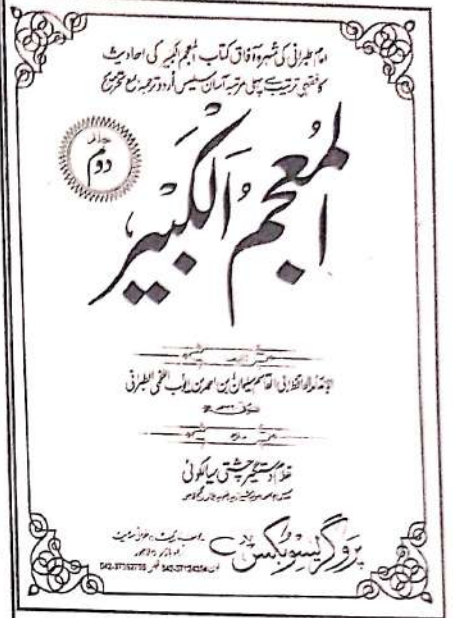 امام طبرانی کی شہرہ آفاق کتاب المعجم الکبیر کی احادیث
کا فقہی ترتیب سے پہلی مرتبہ آسان سلیس اُردو ترجمہ مع تخریج
جلد
دوم
المعجم الکبیر
القاسم سلیمان بن احمد بن ایوب اللخمی الطبرانی
غلام دستگیر چشتی سیالکوٹی
پروگریسو بکس
اردو بازار لاہور